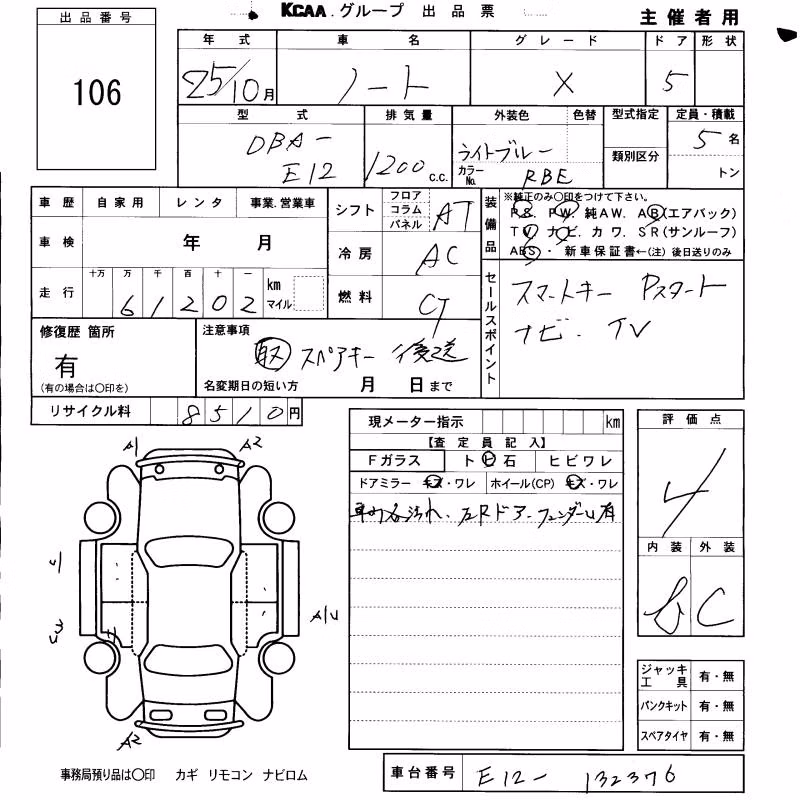 KCAA.グループ 出品票
主催者用
出品番号
106
年式 車名 グレード ドア 形状
25/10月 ノート X 5
型式 排気量 外装色 色替 型式指定 定員・積載
DBA-
E12
1200c.c.
ライトブルー
カラーNo. RBE
類別区分
5名
トン
車歴 自家用 レンタ 事業.営業車
車検 年 月
走行 十万 万 千 百 十 一
61202 km マイル
シフト フロア コラム パネル AT
冷房 AC
燃料 G
装備品
※純正のみ〇印をつけて下さい。
P.S. P.W. 純AW. AB(エアバック)
TV. ナビ. カワ. SR(サンルーフ)
ABS・新車保証書←(注)後日送りのみ
セールスポイント
スマートキー Pスタート
ナビ. TV
修復歴 箇所
有
(有の場合は〇印を)
注意事項
取 スペアキー 後送
名変期日の短い方 月 日まで
リサイクル料 8510円
現メーター指示 km
【査定員記入】
Fガラス ト ビ 石 ヒビワレ
ドアミラー キズ・ワレ ホイール(CP) キズ・ワレ
左Rドアーフェンダー凹有
評価点
4
内装 外装
C
A1 A2
A2
ジャッキ工具 有・無
パンクキット 有・無
スペアタイヤ 有・無
事務局預り品は〇印 カギ リモコン ナビロム
車台番号 E12- 132376